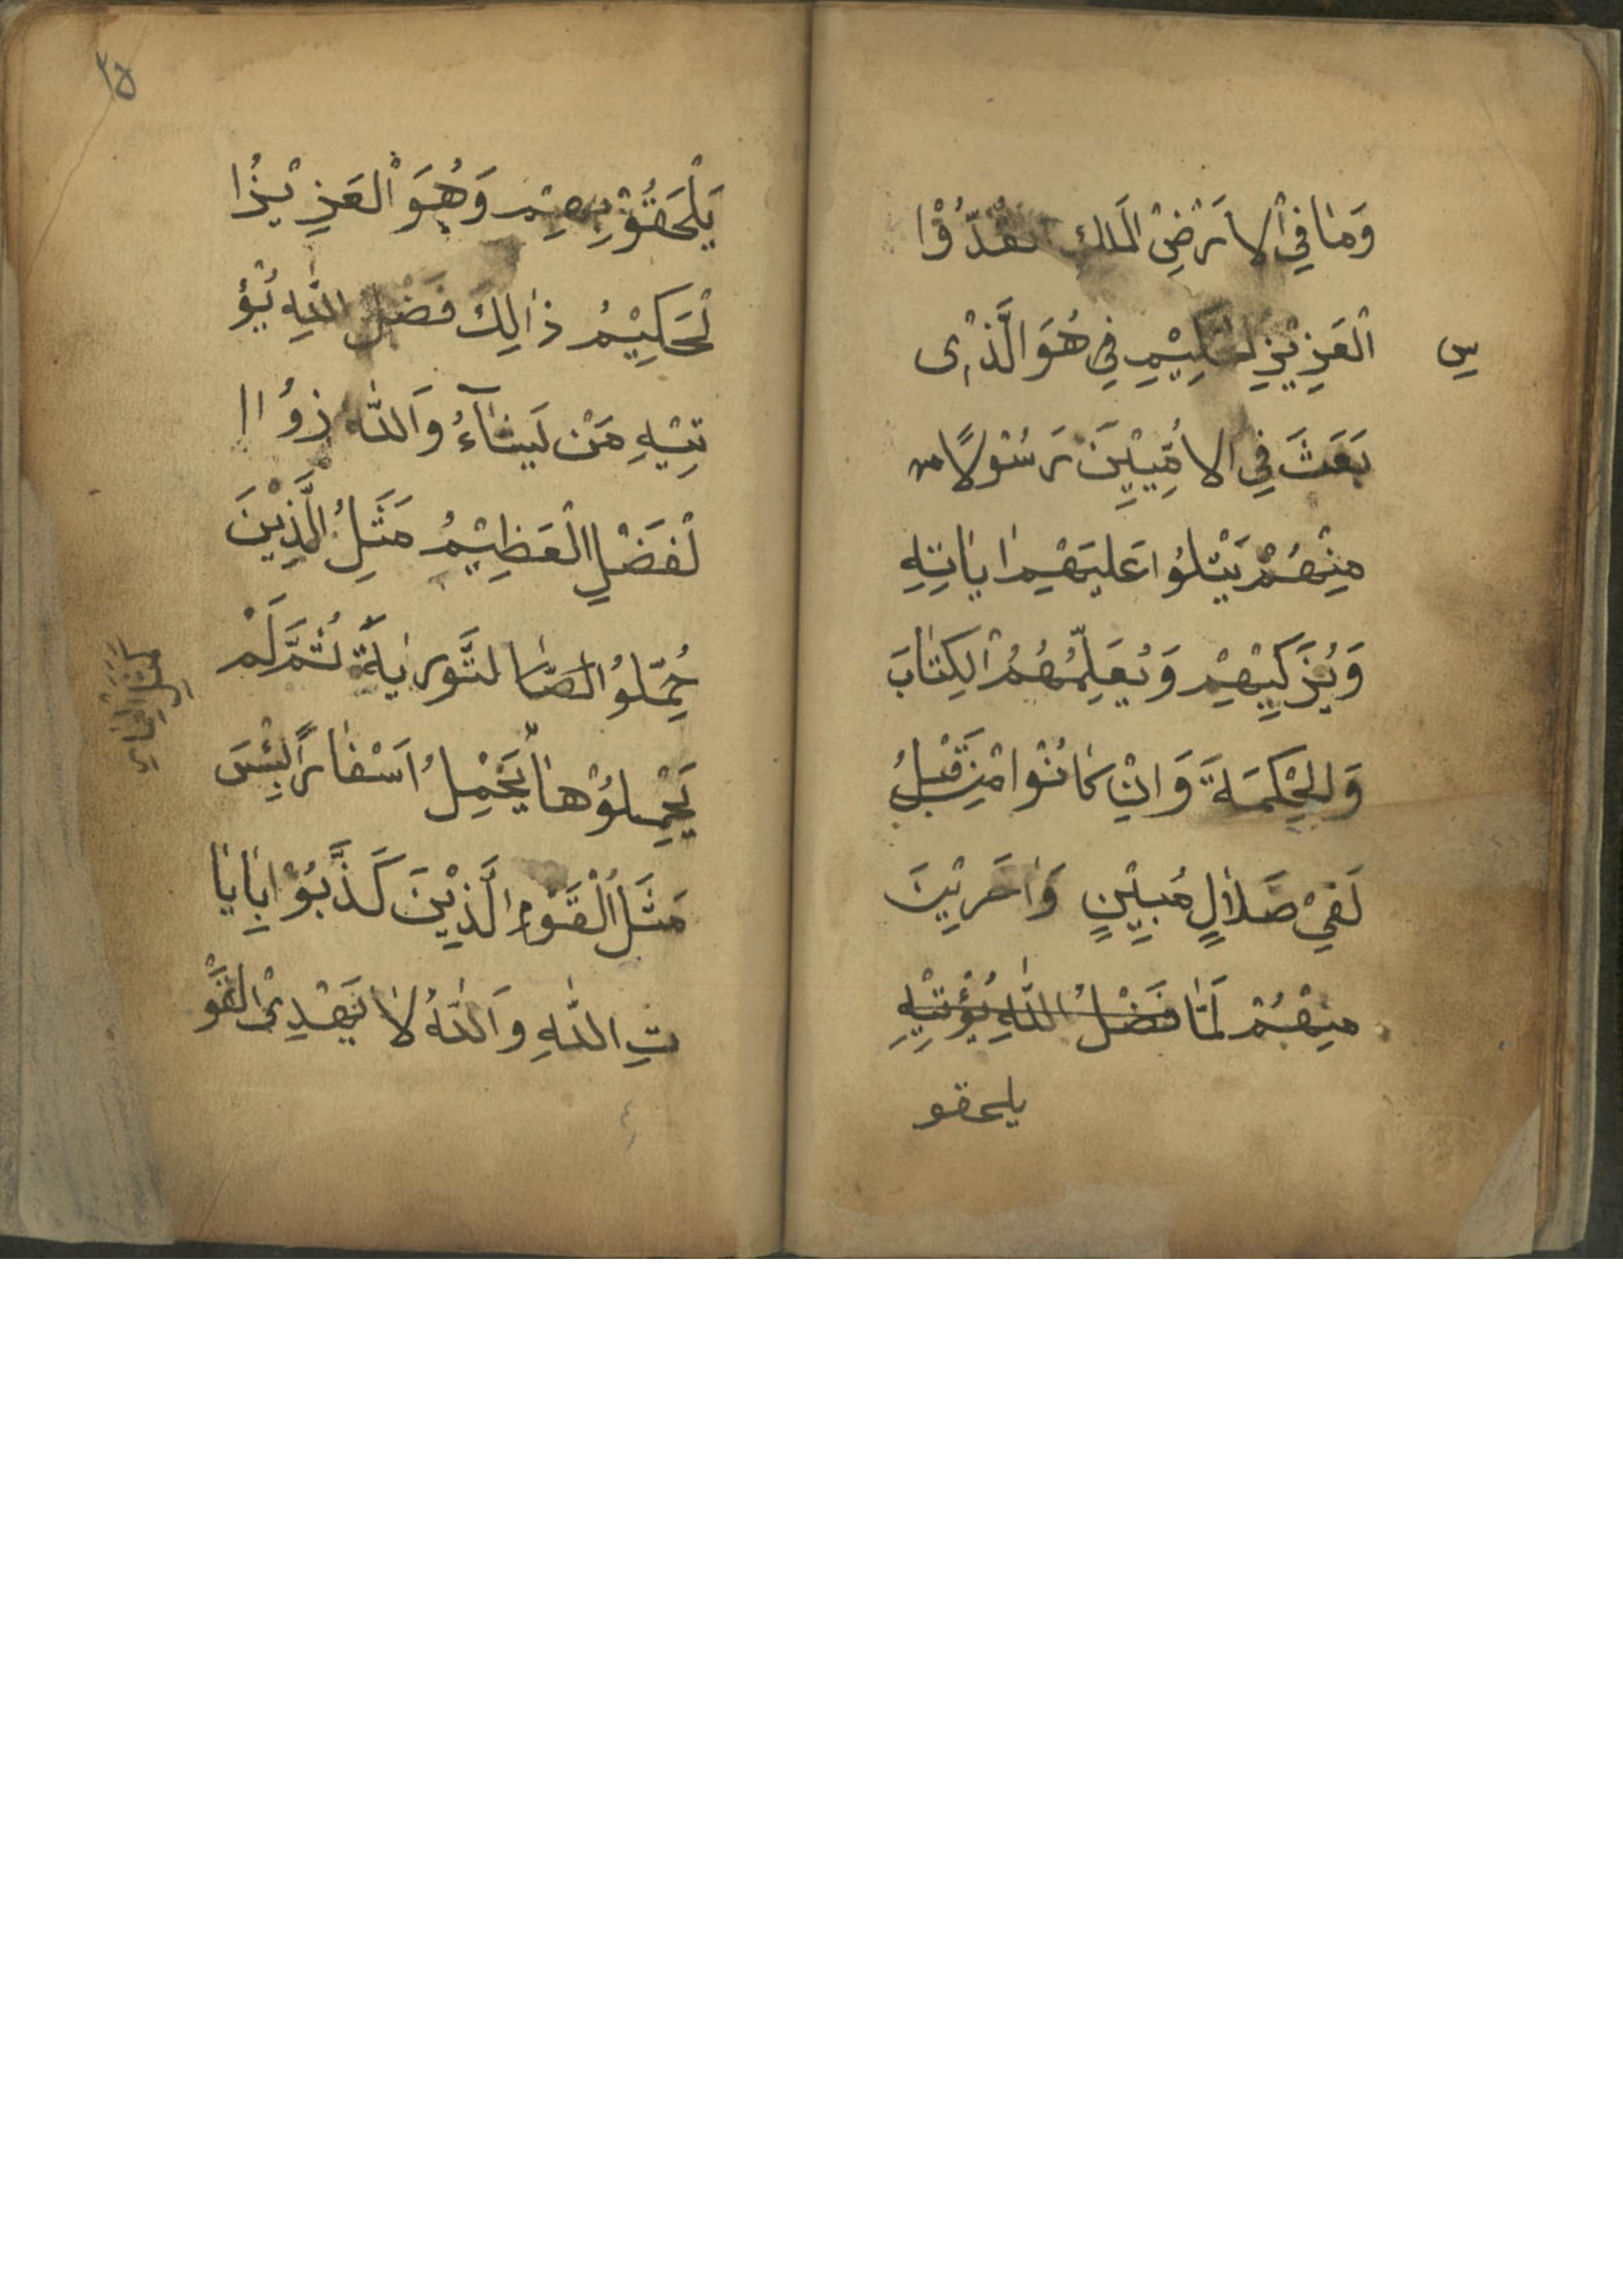 وَمَا فِي الاَرْضِ الْمَلِك قُدُّوْا
س
الْعَزِيْزِ لحَكِيْمِ فِي هُوَ الَّذِى
بَعَثَ فِي الاُمِّيِيْنَ رَسُوْلاً من
مِنْهُمْ يَتْلُوُا عَلَيهِمْ اٰيَاتِهِ
وَيُزَكِّيْهِمْ وَيُعَلِّمُهُمُ الكِتٰابَ
وَالحِكْمَةَ وَانْ كٰانُوْا مِنْ قَبْلُ
لَفِيْ ضَلاٰلٍ مُبِيْنٍ وَاٰخَرِيْنَ
مِنْهُمْ لَمّٰا فَضْلُ اللّٰهِ يُؤْتِيْهِ
يلحقو
٣٥
يَلْحَقُوْ بِهِمْ وَهُوَ الْعَزِيْزُا
لْحَكِيْمُ ذٰالِكَ فَضْلُ اللّٰهِ يُؤْ
تِيْهِ مَنْ يَشٰآءُ وَاَللّٰهُ ذُوُا ا
لْفَضْلِ الْعَظِيْمُ مَثَلُ الَّذِيْنَ
حُمِّلُوُا التَّورىٰةَ ثُمَّ لَمْ
يَحْمِلُوْهٰا يَحْمِلُ اَسْفٰارًا بِئْسَ
مَثَلُ الْقَوْمِ الَّذِيْنَ كَذَّبُوْا بِاٰيٰا
تِ اللّٰهِ وَاَللّٰهُ لاٰ يَهْدِىْ الْقَوْ
كَمَثَلِ الْحِمٰارِ